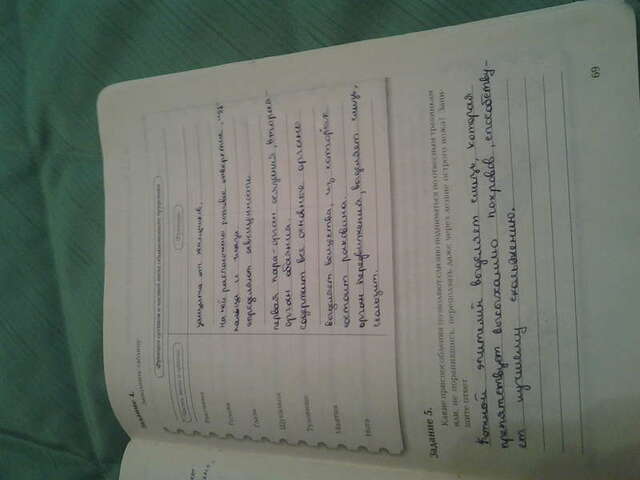 Задание 4.
Заполните таблицу.
Функции органов и частей тела обыкновенного прудовика
Раковина
защита от хищников.
Голова
На ней расположены ротовое отверстие,
щупальца и глаза.
Глаза
определяют освещенность.
Щупальца
первая пара - орган осязания, вторая -
орган обоняния.
Туловище
содержит все основные органы
Мантия
выделяет вещества, из которых
состоит раковина.
Нога
орган передвижения, выделяет слизь,
скользит.
Задание 5.
Какие приспособления позволяют слизню подниматься по отвесным травинкам
или, не поранившись, переползать даже через лезвие острого ножа? Запи-
шите ответ.
Кожной эпителий выделяет слизь, которая
препятствует высыханию покровов, способству-
ет лучшему скольжению.
69